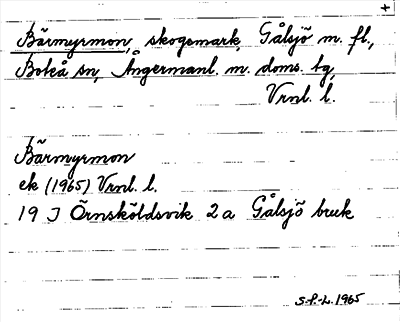 +
Bärmyrmon, skogsmark, Gålsjö m. fl.,
Boteå sn, Ångermanl. m. doms. tg,
Vrnl. l.
Bärmyrmon
ek (1965) Vrnl. l.
19 J Örnsköldsvik 2a Gålsjö bruk
S.P.-L. 1965